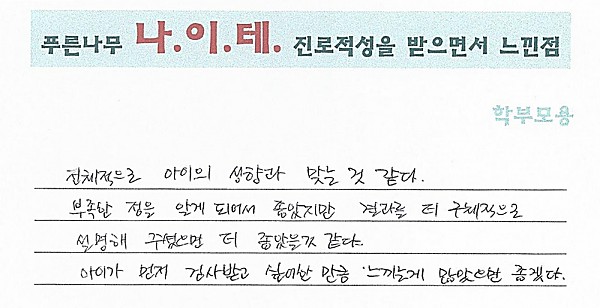 푸른나무 나.이.테. 진로적성을 받으면서 느낀점
학부모용
전체적으로 아이의 성향과 맞는 것 같다.
부족한 점을 알게 되어서 좋았지만 결과를 더 구체적으로
설명해 주셨으면 더 좋았을것 같다.
아이가 먼저 검사받고 싶어한 만큼 느끼는게 많았으면 좋겠다.